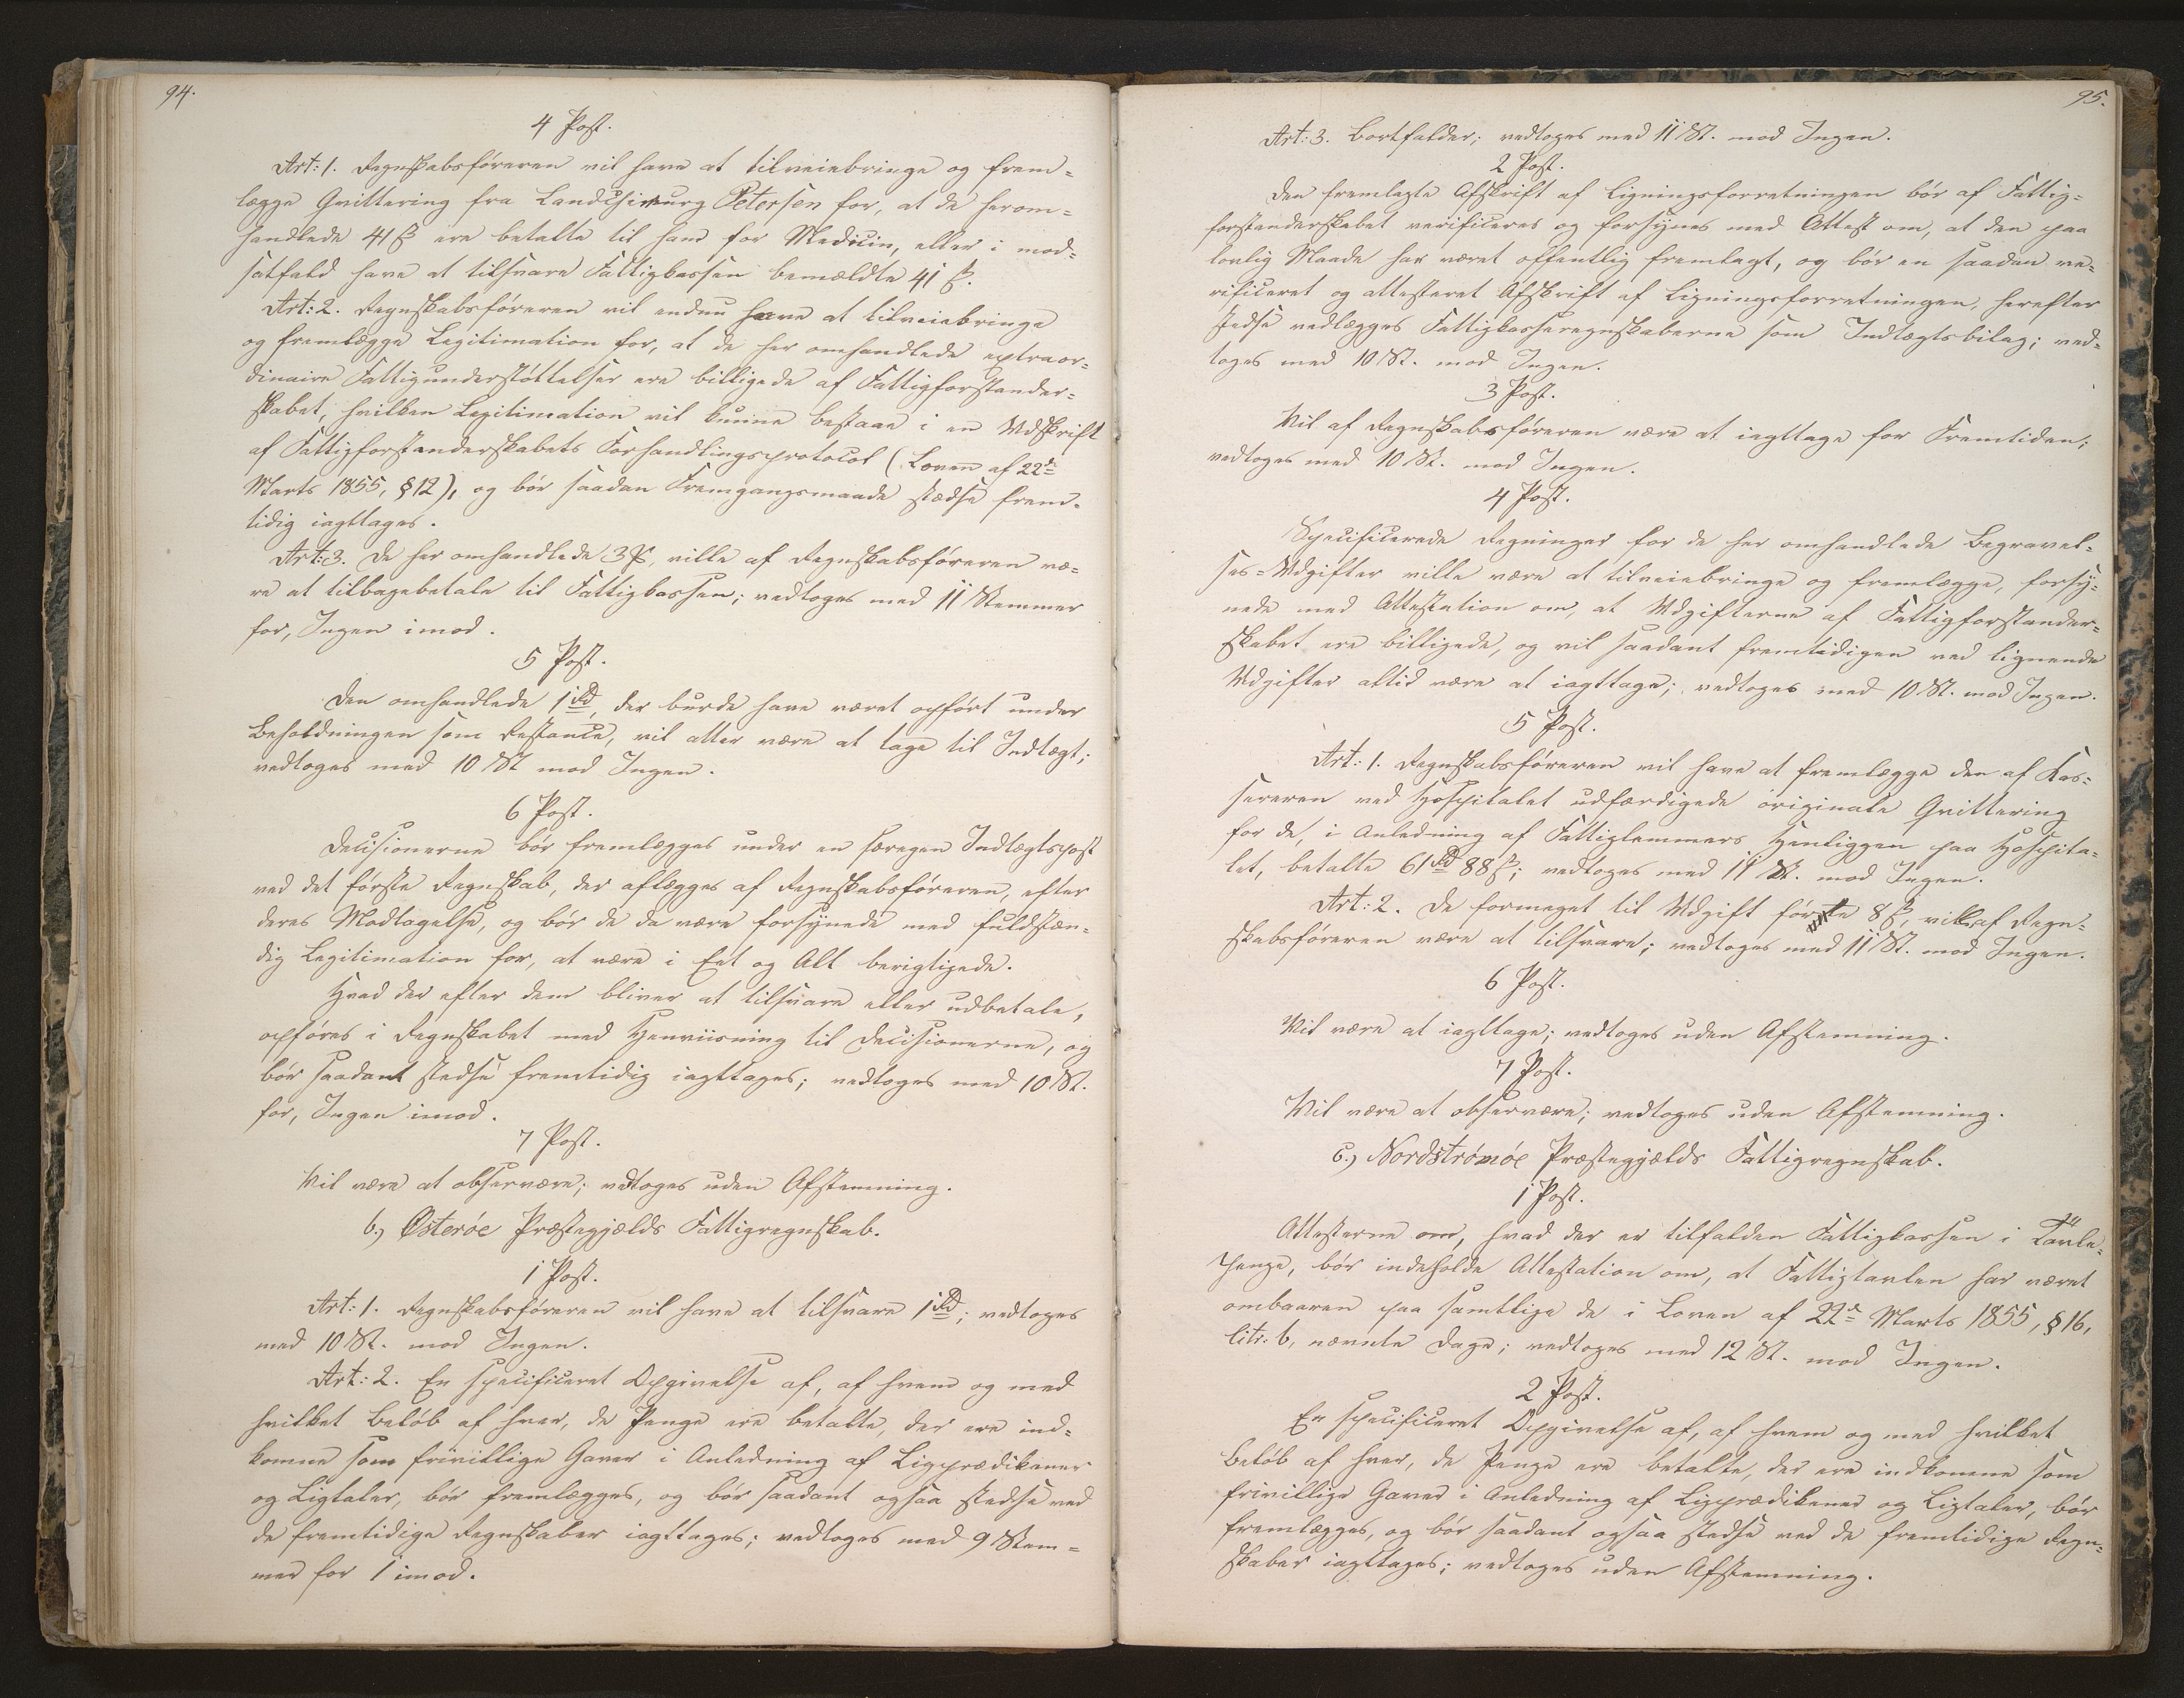 94.
4 Post.
Art: 1. Regnskabsføreren vil have at tilveiebringe og frem=
lægge Qvittering fra Landchirurg Petersen for, at de herom=
handlede 41 ß ere betalte til ham for Medicin, eller i mod=
satfald have at tilsvare Fattigkassen bemældte 41 ß.
Art: 2. Regnskabsføreren vil endnu have at tilveiebringe
og fremlægge Legitimation for, at de her omhandlede extraor=
dinaire Fattigunderstøttelser ere billigede af Fattigforstander=
skabet, hvilken Legitimation vil kunne bestaae i en Udskrift
af Fattigforstanderskabets Forhandlingsprotocol (Loven af 22de
Marts 1855, § 12), og bør saadan Fremgangsmaade stedse frem=
tidig iagttages.
Art: 3. De her omhandlede 3 ß, ville af Regnskabsføreren væ=
re at tilbagebetale til Fattigkassen; vedtoges med 11 Stemmer
for, Ingen imod.
5 Post.
Den omhandlede 1 Rd, der burde have været opført under
Beholdningen som Restance, vil atter være at tage til Indtægt;
vedtoges med 10 St mod Ingen.
6 Post.
Decisionerne bør fremlægges under en særegen Indtægtspost
ved det første Regnskab, der aflægges af Regnskabsføreren, efter
deres Modtagelse, og bør de da være forsynede med fuldstæn=
dig Legitimation for, at være i Eet og Alt berigtigede.
Hvad der efter dem bliver at tilsvare eller udbetale,
opføres i Regnskabet med Henviisning til Decisionerne, og
bør saadant stedse fremtidig iagttages; vedtoges med 10 St.
for, Ingen imod.
7 Post.
Vil være at observere; vedtoges uden Afstemning.
b.) Østerøe Præstegjælds Fattigregnskab.
1 Post.
Art: 1. Regnskabsføreren vil have at tilsvare 1 Rd; vedtoges
med 10 St. mod Ingen.
Art: 2. En specificeret Opgivelse af, af hvem og med
hvilket Beløb af hver, de Penge ere betalte, der ere ind=
komne som frivillige Gaver i Anledning af Ligprædikener
og Ligtaler, bør fremlægges, og bør saadant ogsaa stedse ved
de fremtidige Regnskaber iagttages; vedtoges med 9 Stem=
mer for 1 imod.
95.
Art: 3. Bortfalder; vedtoges med 11 St. mod Ingen.
2 Post.
Den fremlagte Afskrift af Ligningsforretningen bør af Fattig=
forstanderskabet verificeres og forsynes med Attest om, at den paa
lovlig Maade har været offentlig fremlagt, og bør en saadan ve=
rificeret og attesteret Afskrift af Ligningsforretningen, herefter
stedse vedlægges Fattigkasseregnskaberne som Indtægtsbilag; ved=
toges med 10 St. mod Ingen.
3 Post.
Vil af Regnskabsføreren være at iagttage for Fremtiden;
vedtoges med 10 St. mod Ingen.
4 Post.
Specificerede Regninger for de her omhandlede Begravel=
ses=Udgifter ville være at tilveiebringe og fremlægge, forsy=
nede med Attestation om, at Udgifterne af Fattigforstander=
skabet ere billigede, og vil saadant fremtidigen ved lignende
Udgifter altid være at iagttage; vedtoges med 10 St. mod Ingen.
5 Post.
Art: 1. Regnskabsføreren vil have at fremlægge den af Kas=
sereren ved Hospitalet udfærdigede originale Qvittering
for de, i Anledning af Fattiglemmers Henliggen paa Hospita=
let, betalte 61 Rd 88 ß; vedtoges med 11 St. mod Ingen.
Art: 2. De formeget til Udgift førte 8 ß, vil af Regn=
skabsføreren være at tilsvare; vedtoges med 11 St. mod Ingen.
6 Post.
Vil være at iagttage; vedtoges uden Afstemning.
7 Post.
Vil være at observere; vedtoges uden Afstemning.
c.) Nordstrømøe Præstegjælds Fattigregnskab.
1 Post.
Attesterne om, hvad der er tilfalden Fattigkassen i Tavle=
penge, bør indeholde Attestation om, at Fattigtavlen har været
ombaaren paa samtlige de i Loven af 22de Marts 1855, § 16,
litr: b, nævnte Dage; vedtoges med 12 St. mod Ingen.
2 Post.
En specificeret Opgivelse af, af hvem og med hvilket
Beløb af hver, de Penge ere betalte, der ere indkomne som
frivillige Gaver i Anledning af Ligprædikener og Ligtaler, bør
fremlægges, og bør saadant ogsaa stedse ved de fremtidige Regn=
skaber iagttages; vedtoges uden Afstemning.